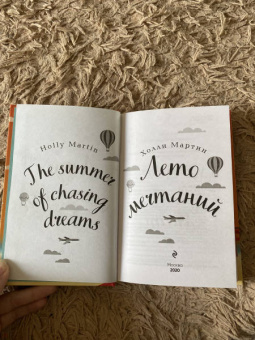 Holly Martin
The summer
of chasing
dreams
Холли Мартин
Лето
мечтаний
Москва
2020